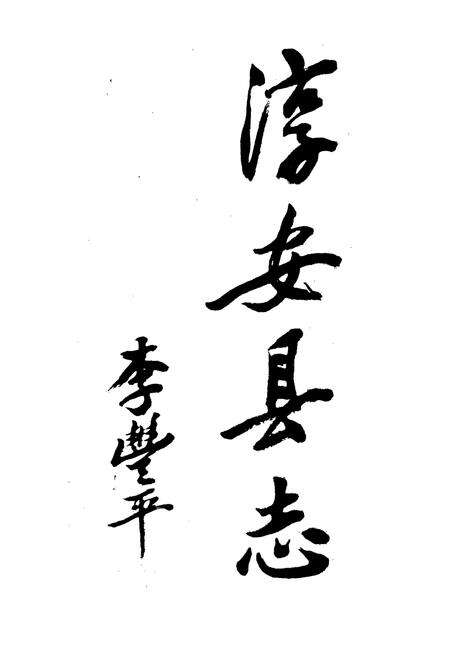 淳安县志
李豐平